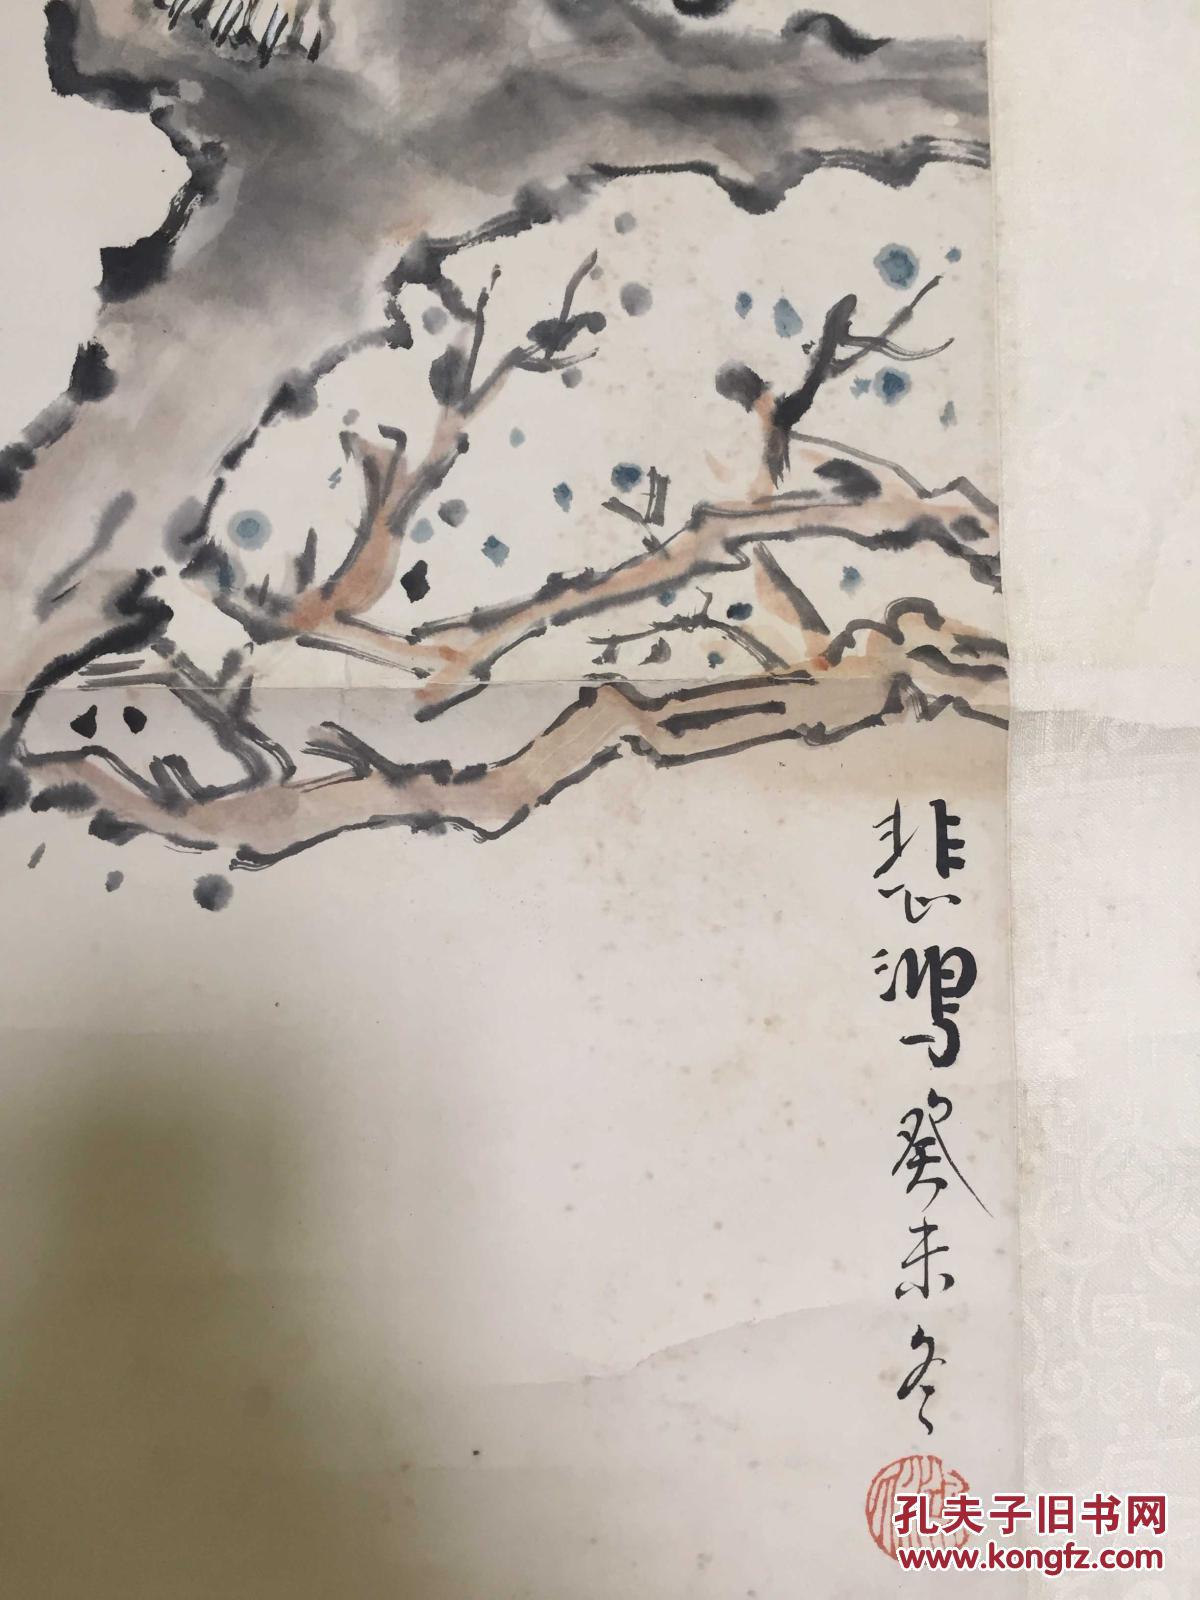 悲鸿癸未冬
孔夫子旧书网
www.kongfz.com